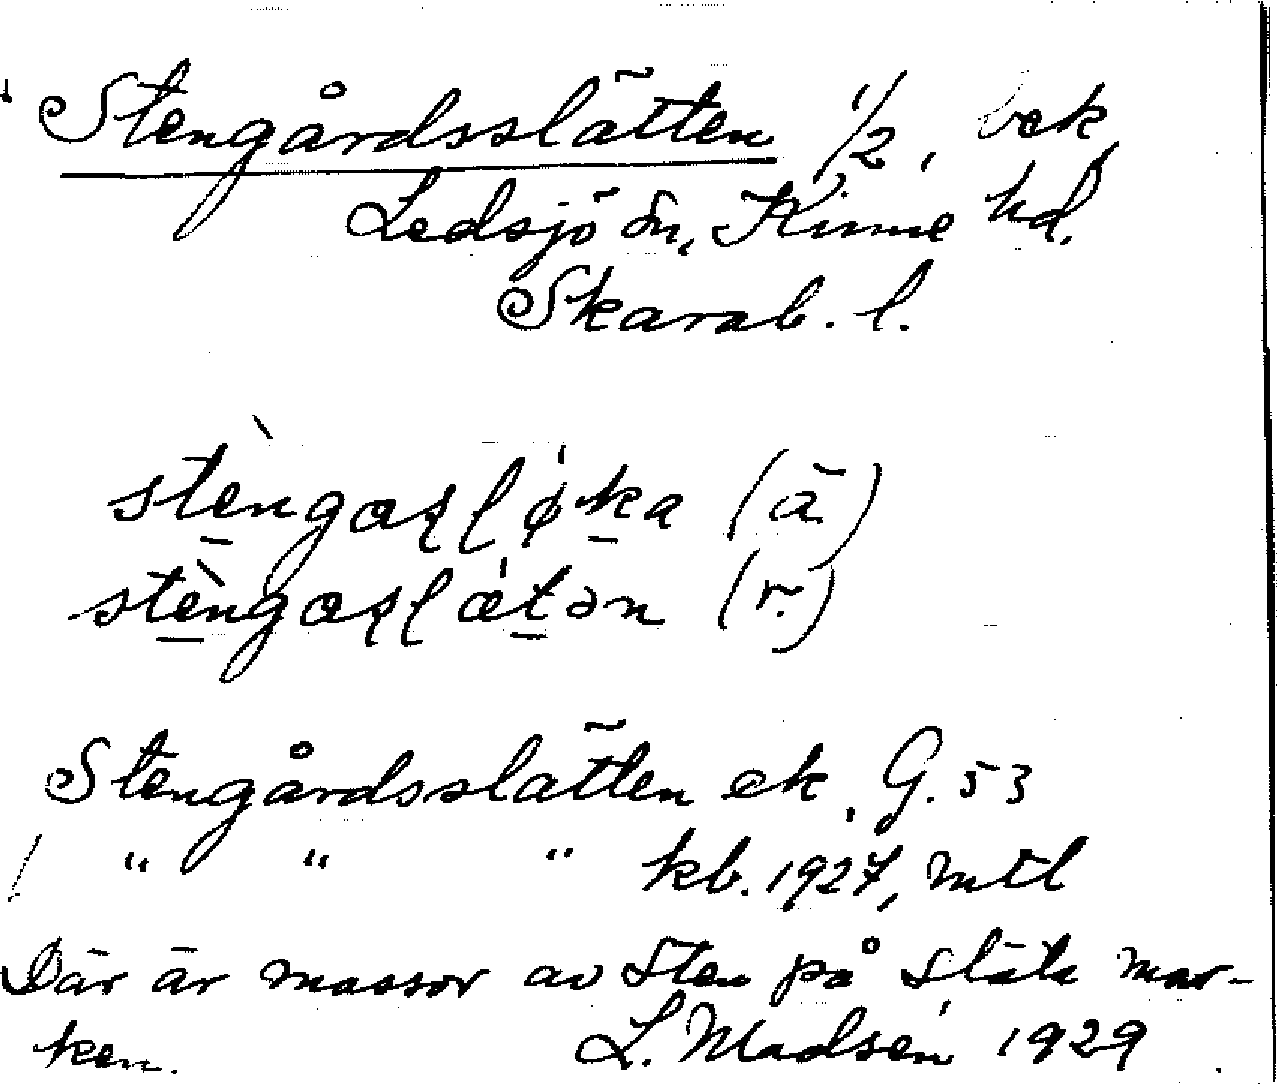 Stengårdsslätten 1/2, bek
Ledsjö sn, Kinne hd.
Skarab. l.
(ä.)
(r.)
Stengårdsslätten ek, G. 53
" " " kb. 1927, mtl
Där är massor av sten på släta mar-
ken. L. Madsén 1929